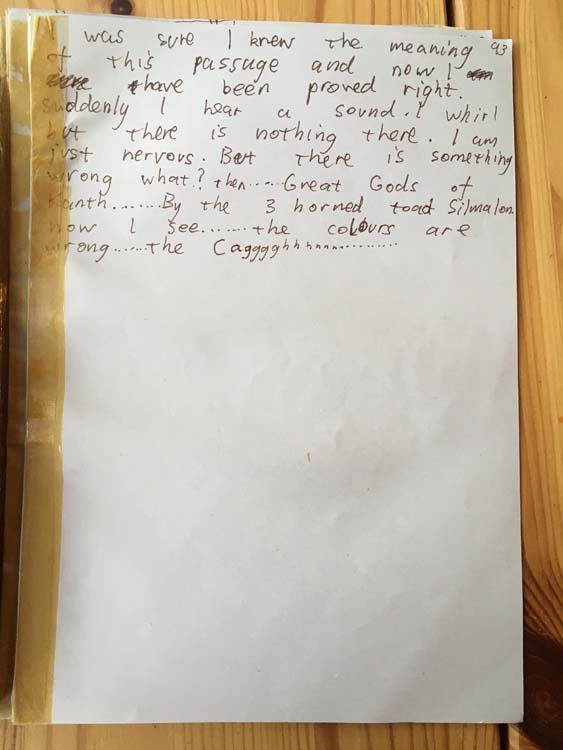 I was sure I knew the meaning 93
of this passage and now I
have been proved right.
Suddenly I hear a sound. I whirl
but there is nothing there. I am
just nervous. But there is something
wrong what? then.....Great Gods of
Xanth........By the 3 horned toad Silmalon.
now I see.......the colours are
wrong......the Caggggghhhnnn..............